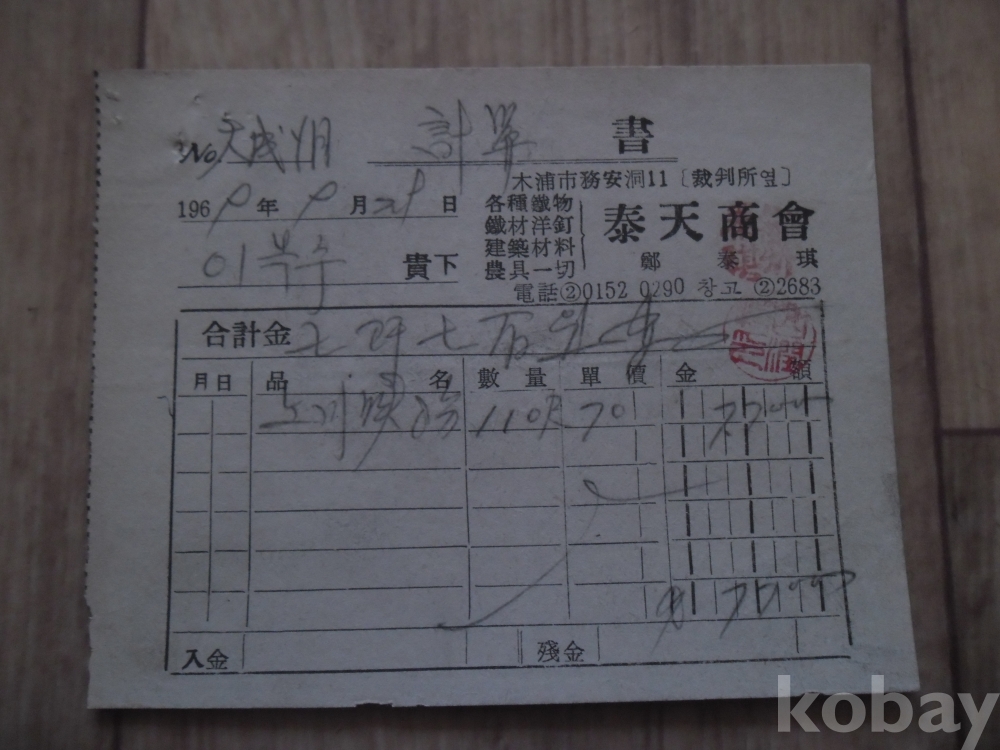 No 計算 書
木浦市務安洞11〔裁判所옆〕
196 年 月 日
各種鐵物
鐵材洋釘
建築材料
農具一切
泰天商會
鄭泰琪
電話②0152 0290 창고②2683
이 수 貴下
合計金 七阡七百원
月日 品名 數量 單價 金額
110尺 70 7700
7700
入金 殘金
kobay